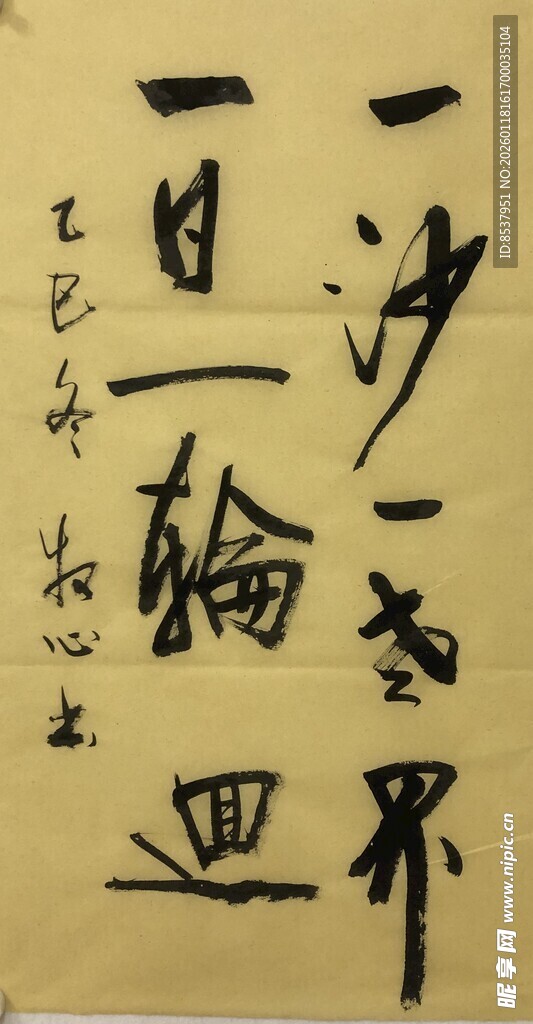 一沙一世界
一日一輪迴
乙巳冬 牧心书
ID:8537951 NO:20260118161700035104
昵享网 www.nipic.cn